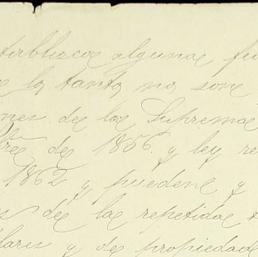 establecer algunas fu
lo tanto no son
nes de las Supremas
bre de 1856. y ley re
1862 y pueden y
es de las repetidas
lares y de propiedad